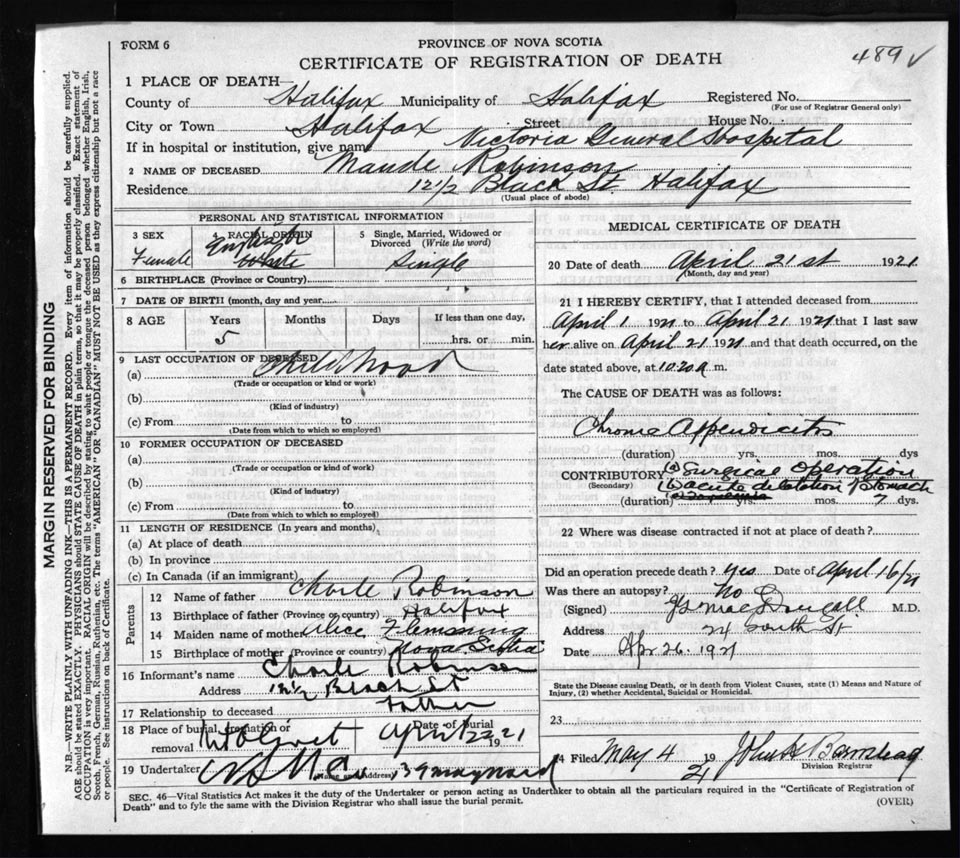 FORM 6
PROVINCE OF NOVA SCOTIA
CERTIFICATE OF REGISTRATION OF DEATH
489 ✓
1 PLACE OF DEATH
County of Halifax Municipality of Halifax Registered No.
(For use of Registrar General only)
City or Town Halifax Street House No.
If in hospital or institution, give name Victoria General Hospital
2 NAME OF DECEASED Maude Robinson
Residence 12 1/2 Black St. Halifax
(Usual place of abode)
PERSONAL AND STATISTICAL INFORMATION
3 SEX
Female
4 RACIAL ORIGIN
English
White
5 Single, Married, Widowed or Divorced (Write the word)
Single
6 BIRTHPLACE (Province or Country)
7 DATE OF BIRTH (month, day and year
8 AGE
Years
5
Months
Days
If less than one day,
hrs. or min.
9 LAST OCCUPATION OF DECEASED
(a) Childhood
(Trade or occupation or kind or work)
(b)
(Kind of industry)
(c) From to
(Date from which to which so employed)
10 FORMER OCCUPATION OF DECEASED
(a)
(Trade or occupation or kind of work)
(b)
(Kind of industry)
(c) From to
(Date from which to which so employed)
11 LENGTH OF RESIDENCE (In years and months)
(a) At place of death
(b) In province
(c) In Canada (if an immigrant)
Parents
12 Name of father Charle Robinson
13 Birthplace of father (Province or country) Halifax
14 Maiden name of mother Alice Flemming
15 Birthplace of mother (Province or country) Nova Scotia
16 Informant's name Charle Robinson
Address 12 1/2 Black St
17 Relationship to deceased father
18 Place of burial, cremation or removal Mt Olivet
Date of Burial
April 22 1921
19 Undertaker
(Name and Address) 39 Maynard
MEDICAL CERTIFICATE OF DEATH
20 Date of death April 21st 1921
(Month, day and year)
21 I HEREBY CERTIFY, that I attended deceased from
April 1 1921 to April 21 1921 that I last saw
her alive on April 21 1921 and that death occurred, on the
date stated above, at 10.20 a m.
The CAUSE OF DEATH was as follows:
Chronic Appendicitis
(duration) yrs. mos. dys
CONTRIBUTORY (a) Surgical Operation
(Secondary) (b) acute dilatation of stomach
(duration) mos. 7 dys.
22 Where was disease contracted if not at place of death?
Did an operation precede death? yes Date of April 16/21
Was there an autopsy? No
(Signed) MacDougall M.D.
Address 24 South St
Date Apr 26. 1921
State the Disease causing Death, or in death from Violent Causes, state (1) Means and Nature of
Injury, (2) whether Accidental, Suicidal or Homicidal.
23
24 Filed May 4 1921 John H Barnstead
Division Registrar
SEC. 46—Vital Statistics Act makes it the duty of the Undertaker or person acting as Undertaker to obtain all the particulars required in the "Certificate of Registration of
Death" and to fyle the same with the Division Registrar who shall issue the burial permit.
(OVER)
MARGIN RESERVED FOR BINDING
N.B.—WRITE PLAINLY WITH UNFADING INK—THIS IS A PERMANENT RECORD. Every item of information should be carefully supplied.
AGE should be stated EXACTLY. PHYSICIANS should STATE CAUSE OF DEATH in plain terms, so that it may be properly classified. Exact statement of
OCCUPATION is very important. RACIAL ORIGIN will be described by stating to what people or tongue the deceased person belonged, whether English, Irish,
Scotch, French, German, Russian, Ruthenian, etc. The terms "AMERICAN" OR "CANADIAN" MUST NOT BE USED as they express citizenship but not a race
or people. See instructions on back of Certificate.